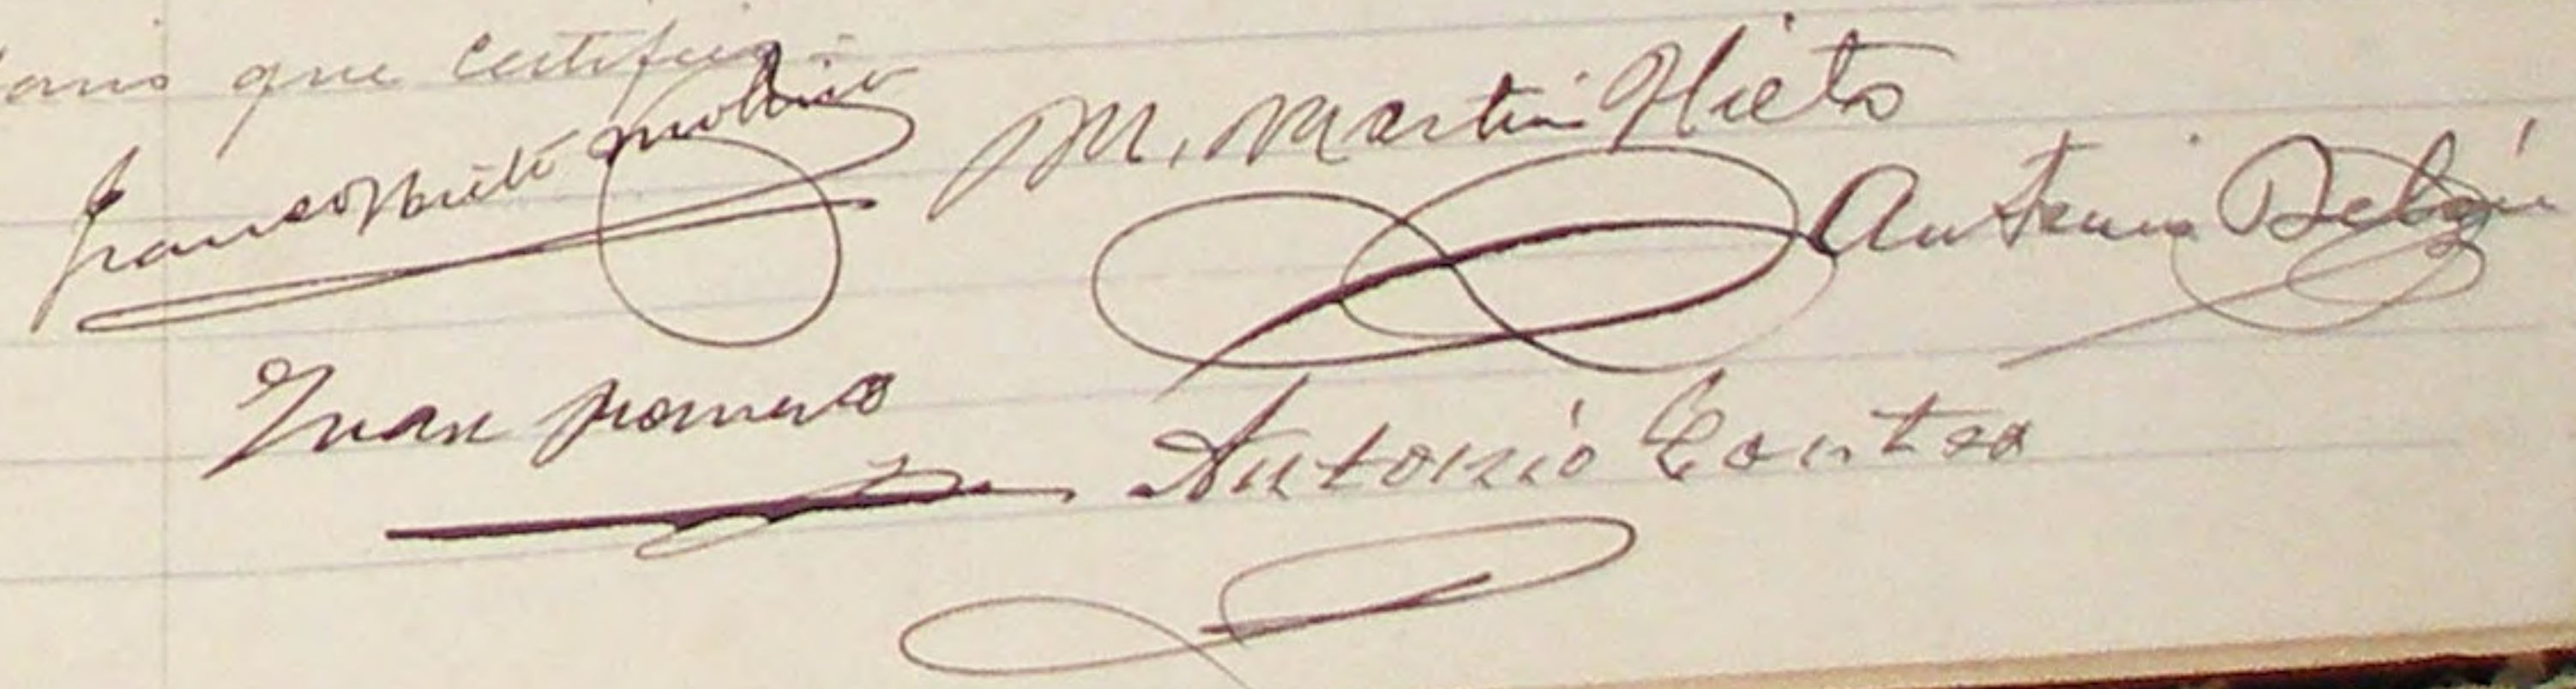 que certifico
Franco Nieto Molino M. Martin Nieto
Antonio
Juan Romero Antonio